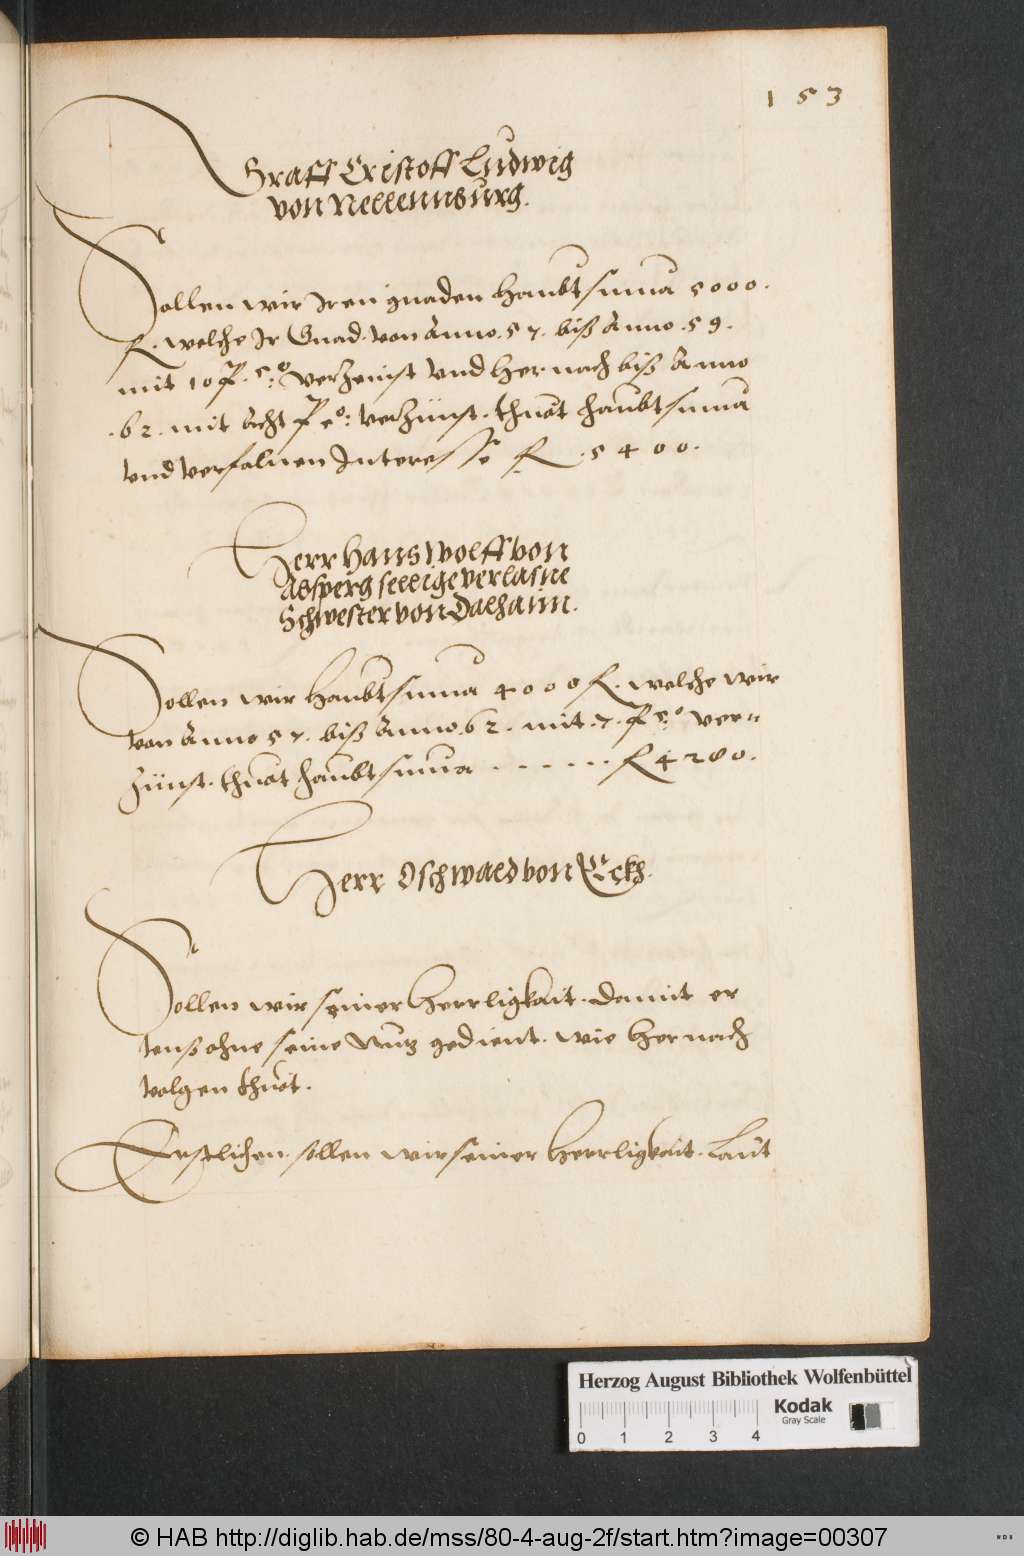 153
Graff Cristoff Ludwig
von Nellennburg.
Sollen wir Iren gnaden haubtsuma 5000.
fl. welche Ir Gnad. von Anno .57. biß Anno .59.
mit 10 p. co: verzeinst vnd hernach biß Anno
.62. mit acht p co: verzünst. thuot haubtsuma
vnd verfalnen Interesse fl .5400.
Herr Hans Wolff von
Absperg sellige verlasne
Schwester von Dalhaim.
Sollen wir haubtsuma 4000 fl. welche wir
von Anno 57. biß Anno 62. mit .7. p co ver-
zünst. thuot haubtsuma . . . . . . fl 4280.
Herr Oschwald von Eckh.
Sollen wir seiner herrligkait. damit er
vnß ohne seine Nutz gedient. wie hernach
volgen thuot.
Erstlichen. sollen wir seiner herrligkait. Laut
Herzog August Bibliothek Wolfenbüttel
Kodak
Gray Scale
0 1 2 3 4
© HAB http://diglib.hab.de/mss/80-4-aug-2f/start.htm?image=00307